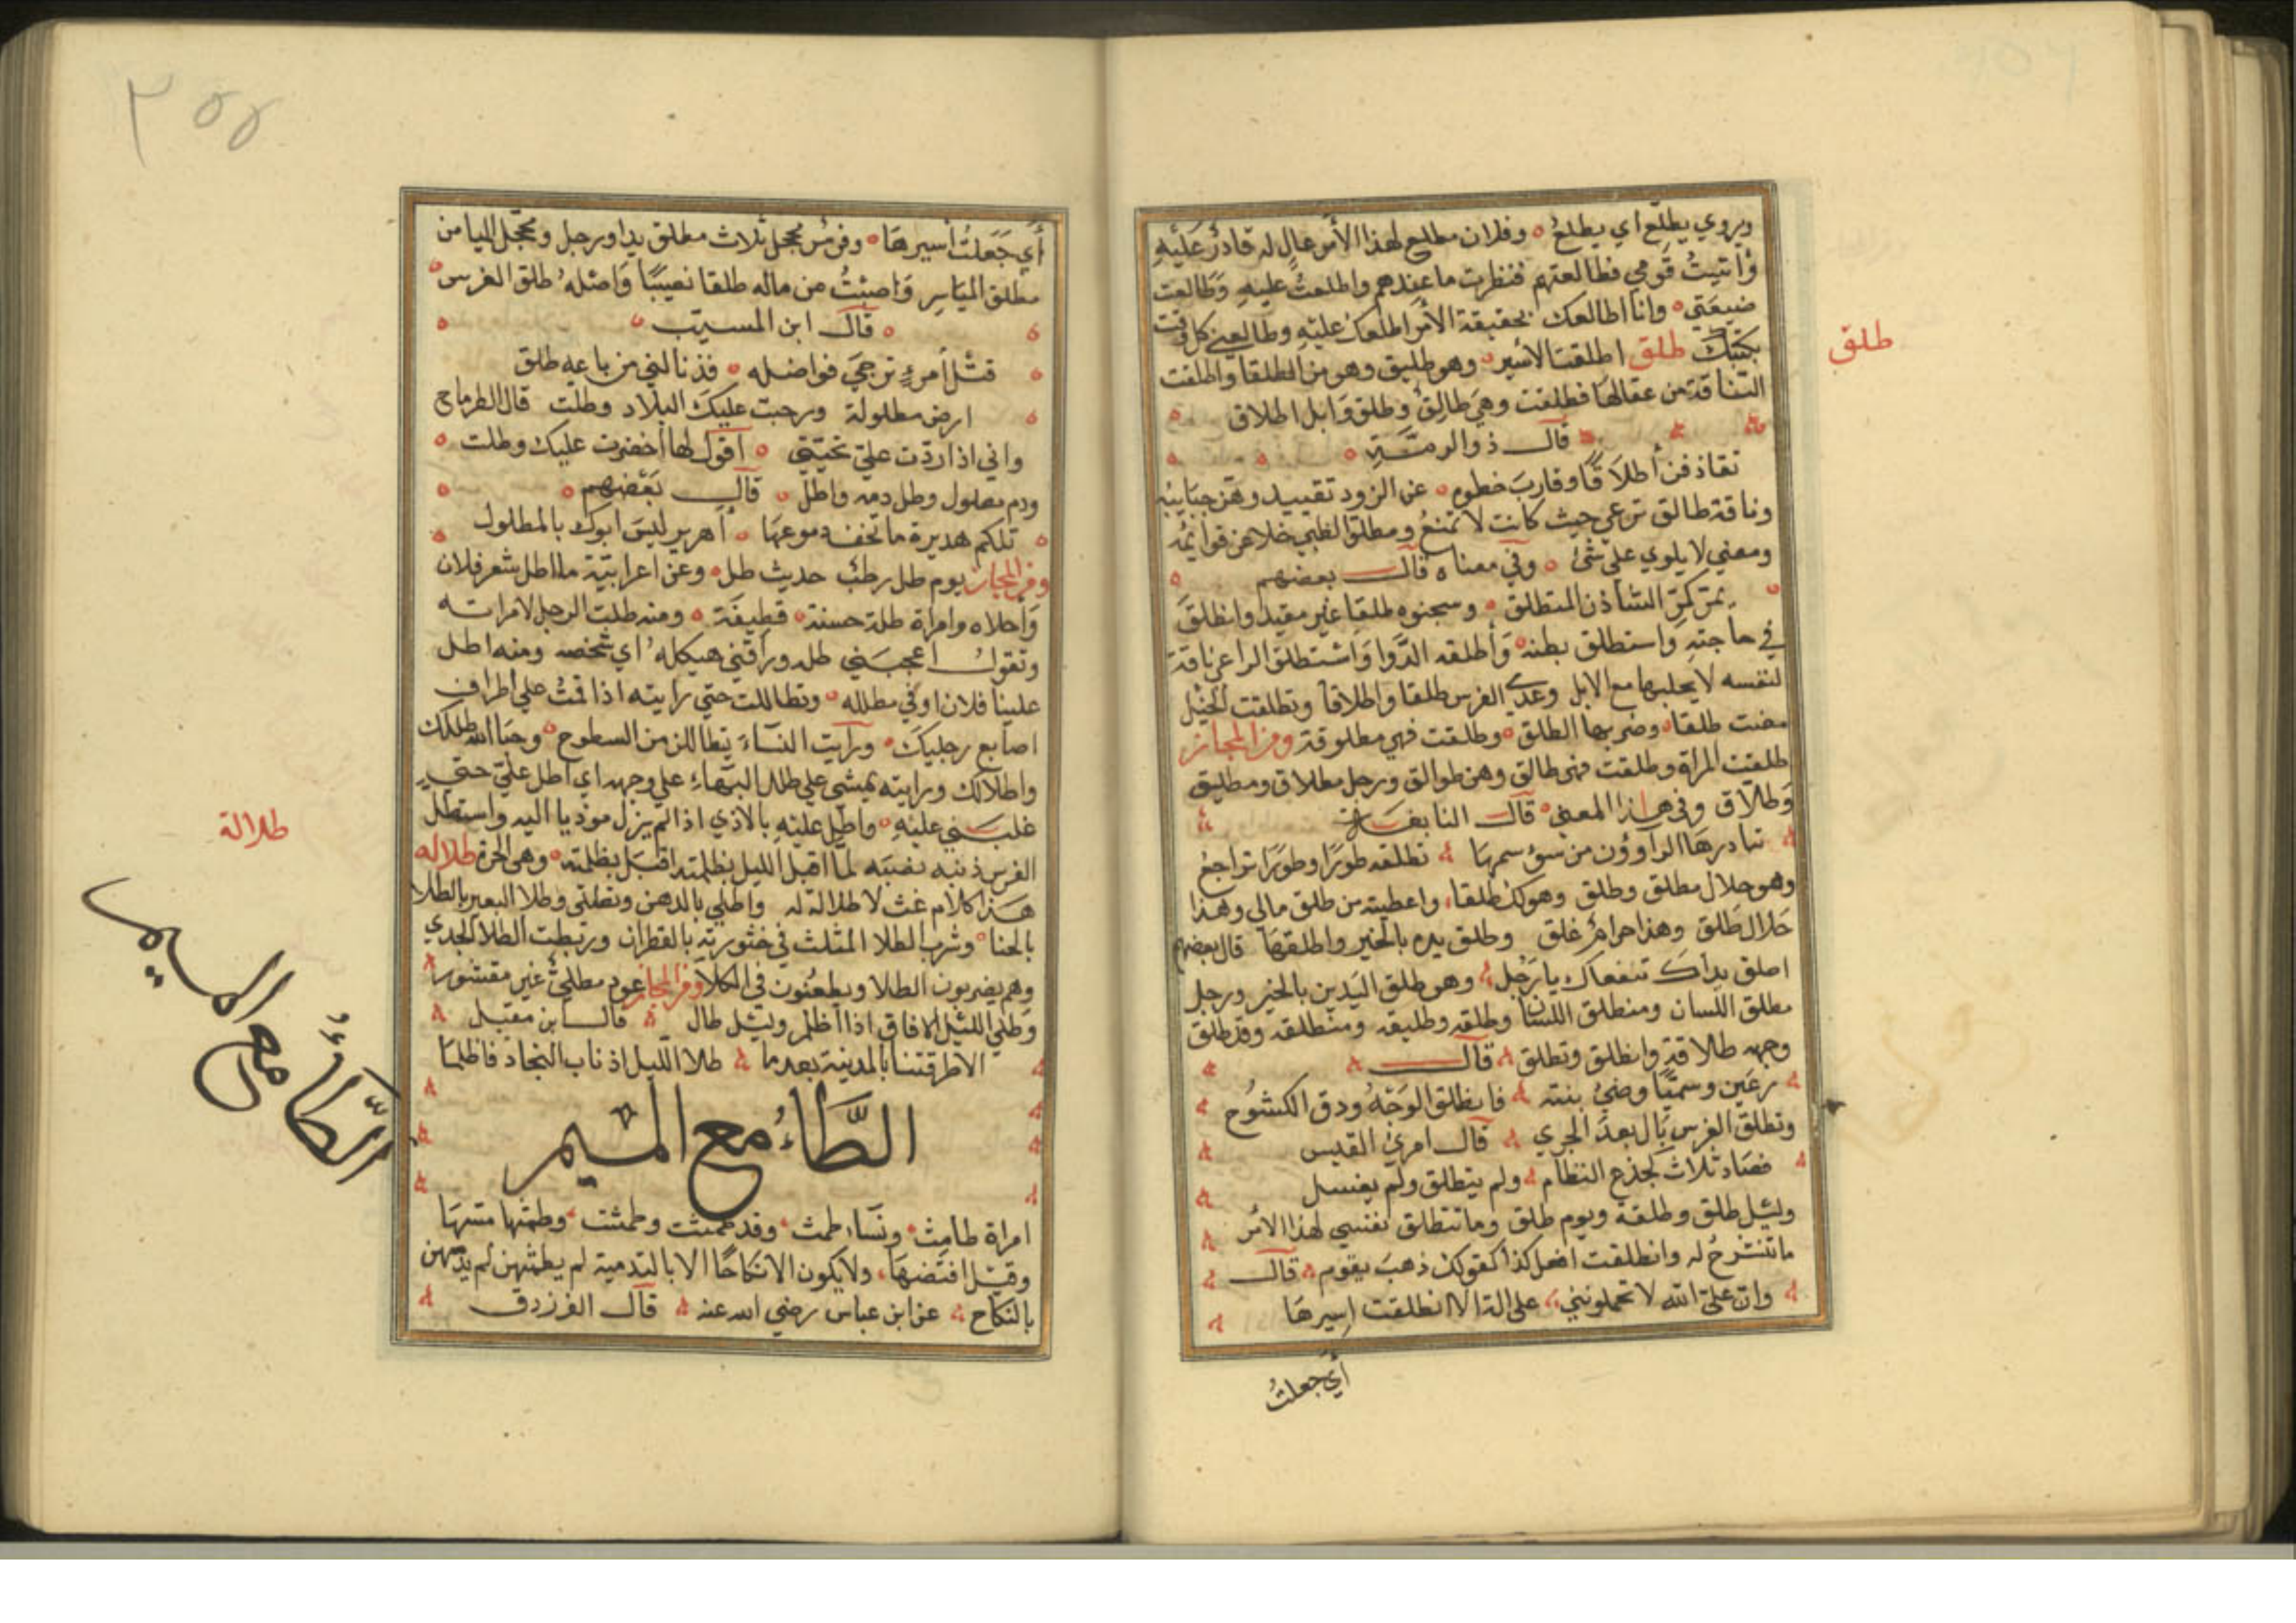 ويروي يطلع اي يطلع ه وفلان مطلع لهذا الأمر عال له قادر عليه
وأتيت قومي فطالعتهم فنظرت ما عندهم واطلعت عليه وطالعت
ضيعتي ه وانا اطالعك بحقيقة الأمر اطلعك عليه وطالعني كل وقت
بكتبك طلق اطلقت الأسير ه وهو طليق وهو من الطلقا واطلقت
طلق
الناقة من عقالها فطلقت وهي طالق وطلق وابل اطلاق
قال ذو الرمة
تقاذفن أطلاقا وقارب خطوه ه عن الزود تقييد وهن حبايبه
وناقة طالق ترعي حيث كانت لا تمنع ومطلق الظبي خلا عن قوائمه
ومعني لا يلوي على شئ ه وفي معناه قال بعضهم
يمر كمر الشاذن المتطلق ه وسجنوه طلقا غير مقيد وانطلق
في حاجته واستطلق بطنه ه وأطلقه الدوا واستطلق الراعي ناقة
لنفسه لا يحلبها مع الابل وعدي الفرس طلقا واطلاقا وتطلقت الخيل
مضت طلقا ه وضربها الطلق ه وطلقت فهي مطلوقة ومن المجاز
طلقت المراة وطلقت فهي طالق وهن طوالق ورجل مطلاق ومطليق
وطلاق وفي هذا المعني ه قال النابغة
تبادرها الراوون من سوء سمها تطلقه طورا وطورا تراجع
وهو حلال مطلق وطلق وهو لك طلقا، واعطيته من طلق مالي وهذا
حلال طلق وهذا حرام غلق وطلق يده بالخير واطلقها قال بعضهم
اطلق يداك تنفعاك يا رجل وهو طلق اليدين بالخير ورجل
مطلق اللسان ومنطلق اللسان وطلقه وطليقه ومنطلقه وقد طلق
وجهه طلاقة وانطلق وتطلق قال
رعين وسميا وضئ بنته فانطلق الوجه ودق الكشوح
وتطلق الفرس بال بعد الجري قال امرئ القيس
فصاد ثلاث كجذع النظام ولم يتطلق ولم يغسل
وليل طلق وطلقة ويوم طلق وما تنطلق نفسي لهذا الأمر
ما تنشرح له وانطلقت افعل كذا كقولك ذهب يقوم قال
وان علي الله لا تحملونني علي الة الا انطلقت اسيرها
أي جعلت
٣٥٥
أي جعلت أسيرها ه وفرس محجل ثلاث مطلق يدا ورجل ومحجل الميامن
مطلق المياسر واصبت من ماله طلقا نصيبا واصله طلق الفرس
قال ابن المسيب
قتل أمرء ترجي فواضله ه فذنالني من باعه طلق
ارض مطلولة ورحبت عليك البلاد وطلت قال الطرماح
واني اذا ردت علي تحيتي ه أقول لها أخضرت عليك وطلت
ودم مطلول وطل دمه واطل ه قال بعضهم
تلكم هديرة ما تخف دموعها ه أهرير ليس ابوك بالمطلول
ومن المجاز يوم طل رطب حديث طل ه وعن اعرابية ما اطل شعر فلان
وأحلاه وامراة طلة حسنة ه قطيفة ه ومنه طلت الرجل لامراته
وتقول اعجبني طله وراقني هيكله اي شخصه ومنه اطل
علينا فلان اوفي مطلله ه وتطاللت حتي رايته اذا قمت علي اطراف
اصابع رجليك ه ورأيت النساء يتطاللن من السطوح ه وحيا الله طللك
واطلالك ورايته يمشي علي طلل البهماء علي وجهه اي اطل علي حتي
غلبني عليه ه واطل عليه بالاذي اذا لم يزل موذيا اليه واستطل
الفرس ذنبه نصبه لما اقبل الليل بظلمته اقبل بظلمته ه وهي الخرة طلاله
طلالة
هذا كلام غث لا طلالة له واطلي بالدهن وتطلي وطلا البعير بالطلا
بالحنا ه وشرب الطلا المثلث في خثورته بالقطران وربطت الطلا الجدي
وهم يضربون الطلا ويطعنون في الكلا ومن المجاز عود مطلي غير مقشور
وطلي الليل الافاق اذا اظلم وليل طال قال ابن مقبل
الا طرقتنا بالمدينة بعدما طلا الليل اذ ناب النجاد فاظلما
الطاء مع الميم
الطاء مع الميم
امراة طامث ه ونساء طمث وقد طمثت وطمثت وطمثها مسها
وقيل افتضها، ولا يكون الا نكاحا الا بالتدمية لم يطمثهن لم يدمهن
بالنكاح عن ابن عباس رضي الله عنه قال الفرزدق